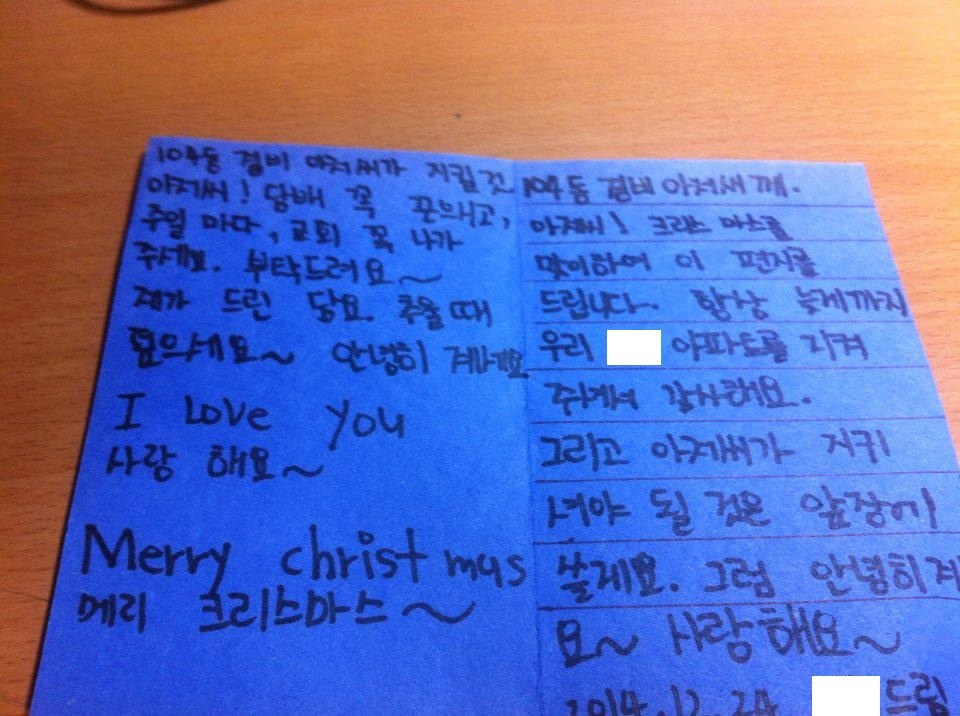 104동 경비 아저씨가 지킬것
아저씨! 담배 꼭 끈으시고,
주일 마다, 교회 꼭 나가
주세요. 부탁드려요~
제가 드린 담요. 추울때
덮으세요~ 안녕히 계세요
I Love you
사랑 해요~
Merry christmas
메리 크리스마스~
104동 경비아저씨께.
아저씨! 크리스 마스를
맞이하여 이 편지를
드립니다. 항상 늦게까지
우리 아파트를 지켜
주셔서 감사해요.
그리고 아저씨가 지키
셔야 될 것은 앞장에
쓸게요. 그럼 안녕히계
요~ 사랑해요~
2014.12.24 드림